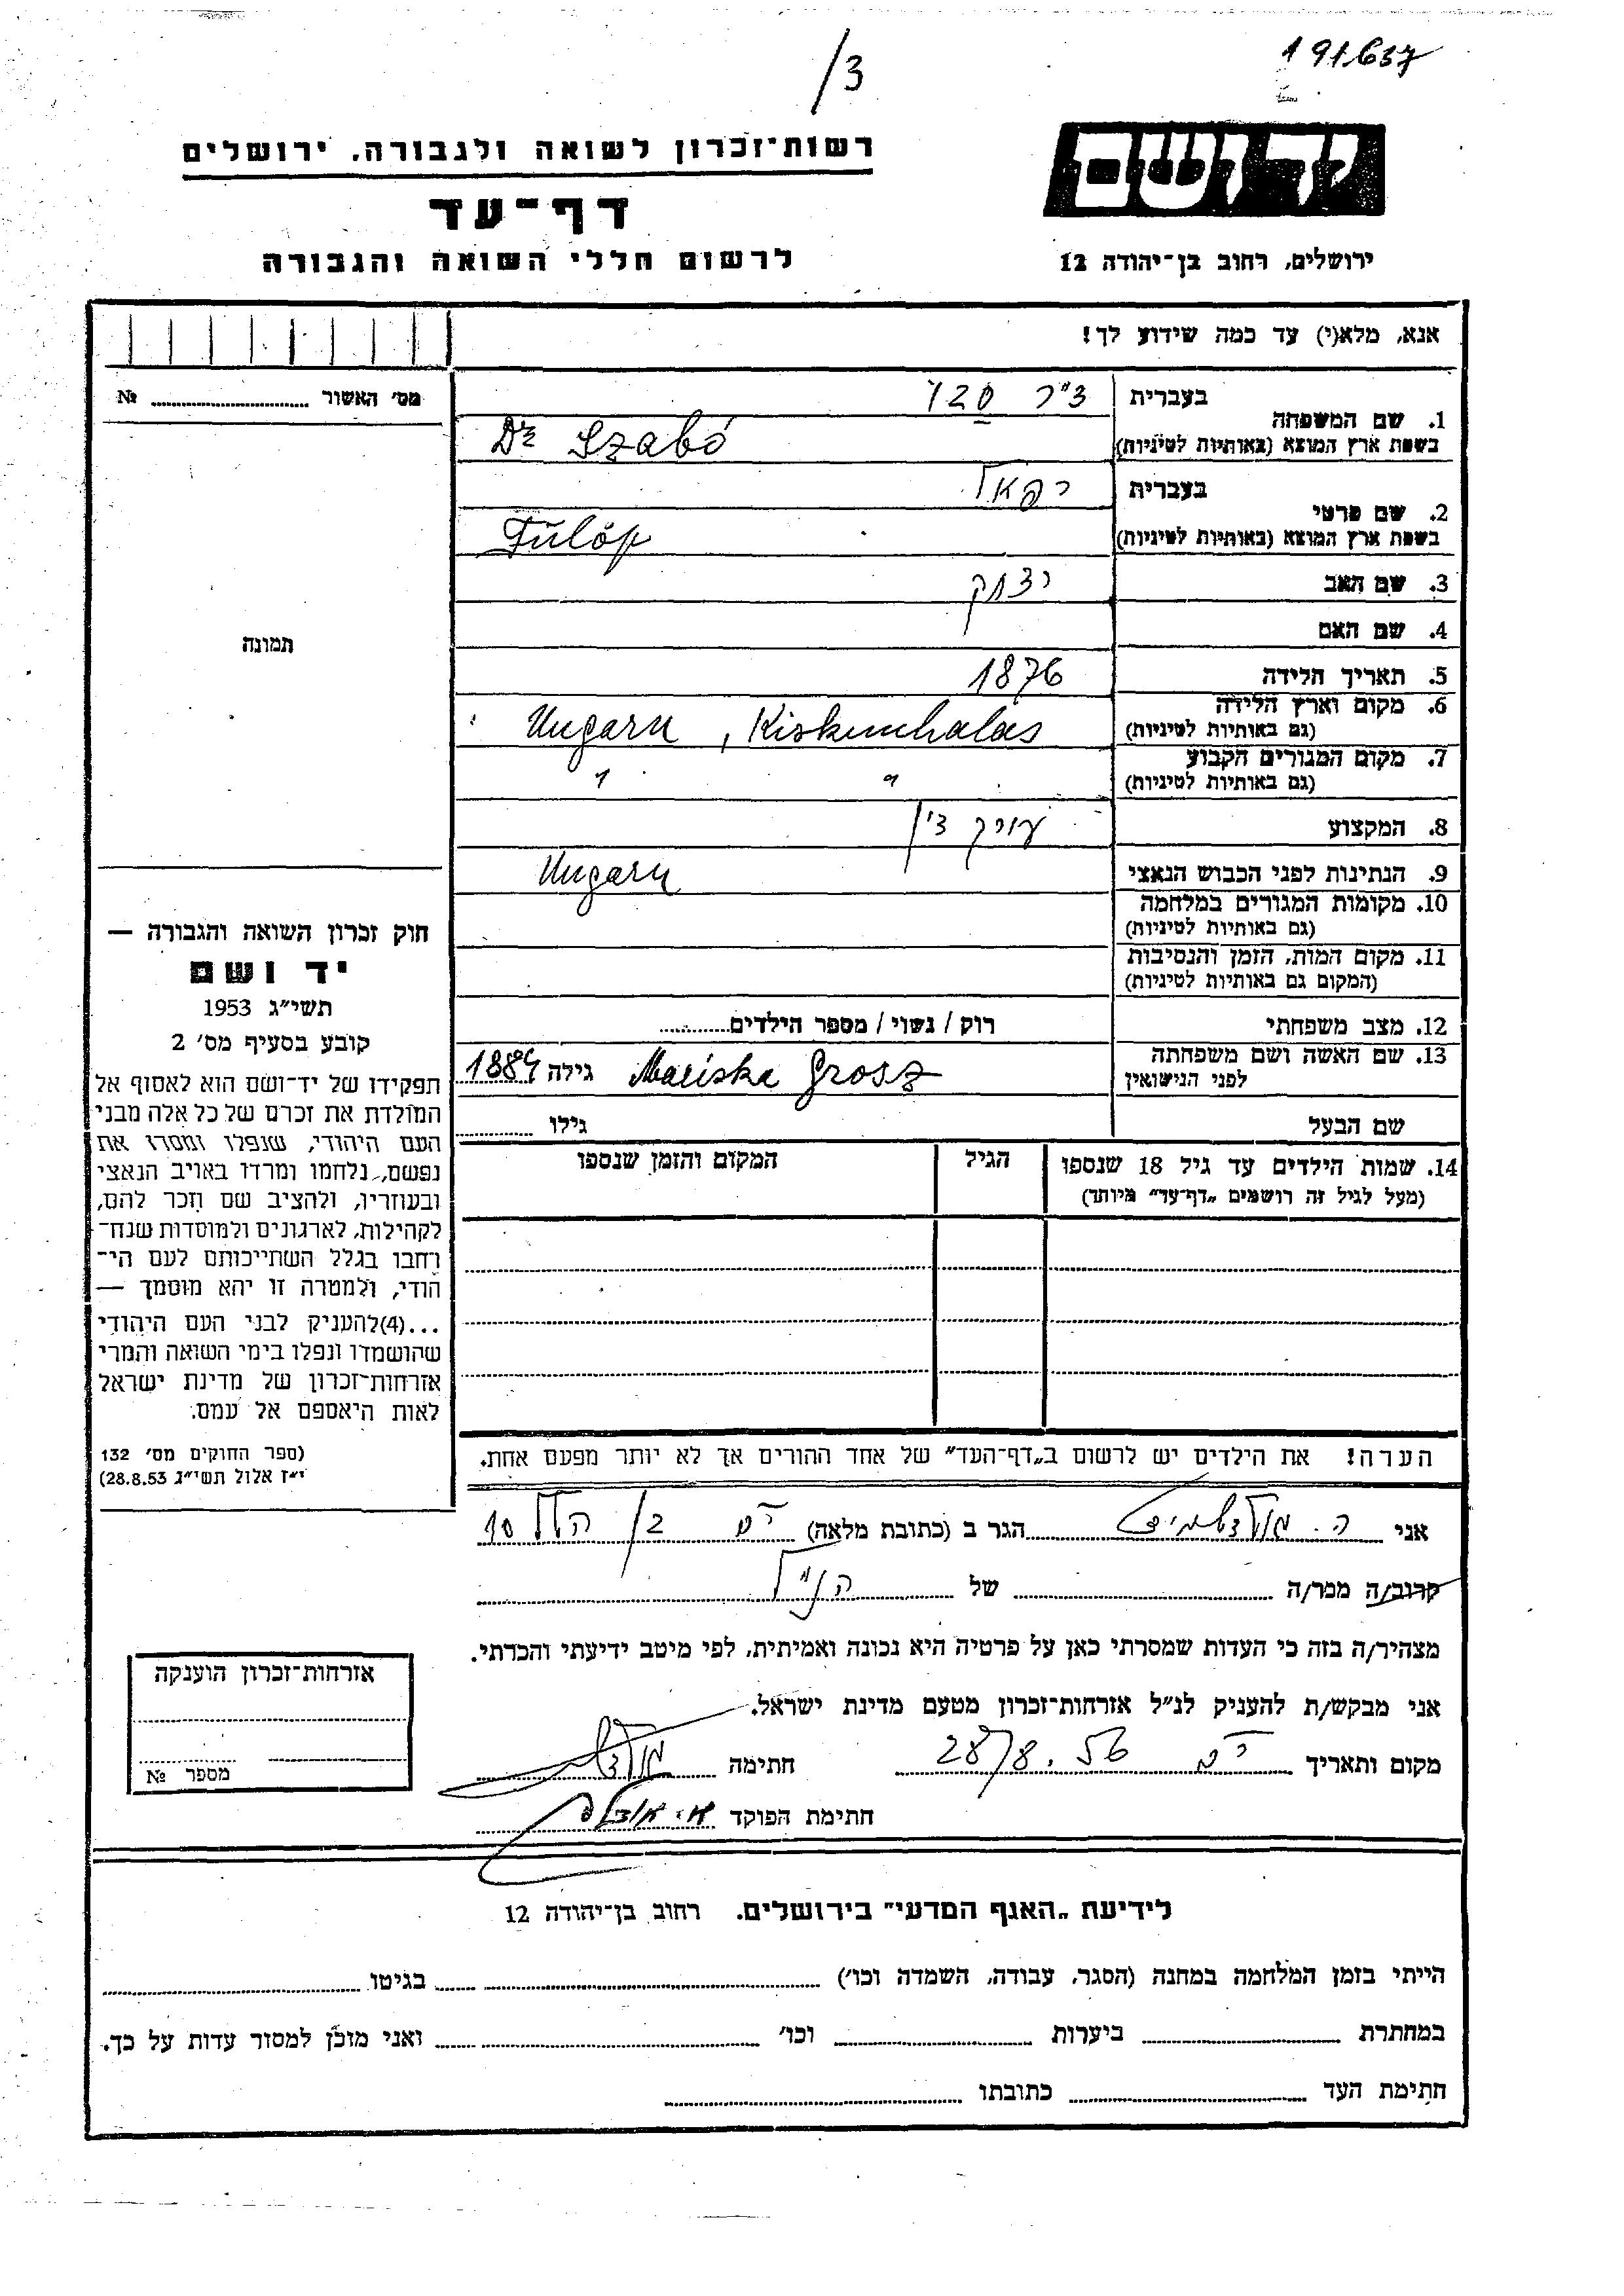 191.637
/3
יד ושם
רשות־זכרון לשואה ולגבורה, ירושלים
דף־עד
לרשום חללי השואה והגבורה
ירושלים, רחוב בן־יהודה 12
אנא, מלא(י) עד כמה שידוע לך!
מס׳ האשור № 
1. שם המשפחה
בעברית ד"ר סבו
בשפת ארץ המוצא (באותיות לטיניות) Dr Szabó
2. שם פרטי
בעברית רפאל
בשפת ארץ המוצא (באותיות לטיניות) Fülöp
3. שם האב יצחק
4. שם האם
5. תאריך הלידה 1876
6. מקום וארץ הלידה
(גם באותיות לטיניות) Ungarn, Kiskunhalas
7. מקום המגורים הקבוע
(גם באותיות לטיניות) " "
8. המקצוע עורך דין
9. הנתינות לפני הכבוש הנאצי Ungarn
10. מקומות המגורים במלחמה
(גם באותיות לטיניות)
11. מקום המות, הזמן והנסיבות
(המקום גם באותיות לטיניות)
12. מצב משפחתי רוק / נשוי / מספר הילדים
13. שם האשה ושם משפחתה
לפני הנישואין Mariska Grosz גילה 1884
שם הבעל גילו
14. שמות הילדים עד גיל 18 שנספו
(מעל לגיל זה רושמים „דף־עד״ מיוחד)
הגיל
המקום והזמן שנספו
הערה! את הילדים יש לרשום ב„דף־העד״ של אחד ההורים אך לא יותר מפעם אחת.
תמונה
חוק זכרון השואה והגבורה —
יד ושם
תשי״ג 1953
קובע בסעיף מס׳ 2
תפקידו של יד־ושם הוא לאסוף אל
המולדת את זכרם של כל אלה מבני
העם היהודי, שנפלו ומסרו את
נפשם, נלחמו ומרדו באויב הנאצי
ובעוזריו, ולהציב שם וזכר להם,
לקהילות, לארגונים ולמוסדות שנח־
רחבו בגלל השתייכותם לעם הי־
הודי, ולמטרה זו יהא מוסמך —
...(4)להעניק לבני העם היהודי
שהושמדו ונפלו בימי השואה והמרי
אזרחות־זכרון של מדינת ישראל
לאות היאספם אל עמם.
(ספר החוקים מס׳ 132
י״ז אלול תשי״ג 28.8.53)
אני ה. גולדשמידט הגר ב (כתובת מלאה) הלל 10
קרוב/ה מכר/ה של הנ"ל
מצהיר/ה בזה כי העדות שמסרתי כאן על פרטיה היא נכונה ואמיתית, לפי מיטב ידיעתי והכרתי.
אני מבקש/ת להעניק לנ״ל אזרחות־זכרון מטעם מדינת ישראל.
מקום ותאריך 28/8.56 חתימה
חתימת הפוקד
אזרחות־זכרון הוענקה
מספר №
לידיעת „האגף המדעי״ בירושלים. רחוב בן־יהודה 12
הייתי בזמן המלחמה במחנה (הסגר, עבודה, השמדה וכו׳) בגיטו
במחתרת ביערות וכו׳ ואני מוכן למסור עדות על כך.
חתימת העד כתובתו